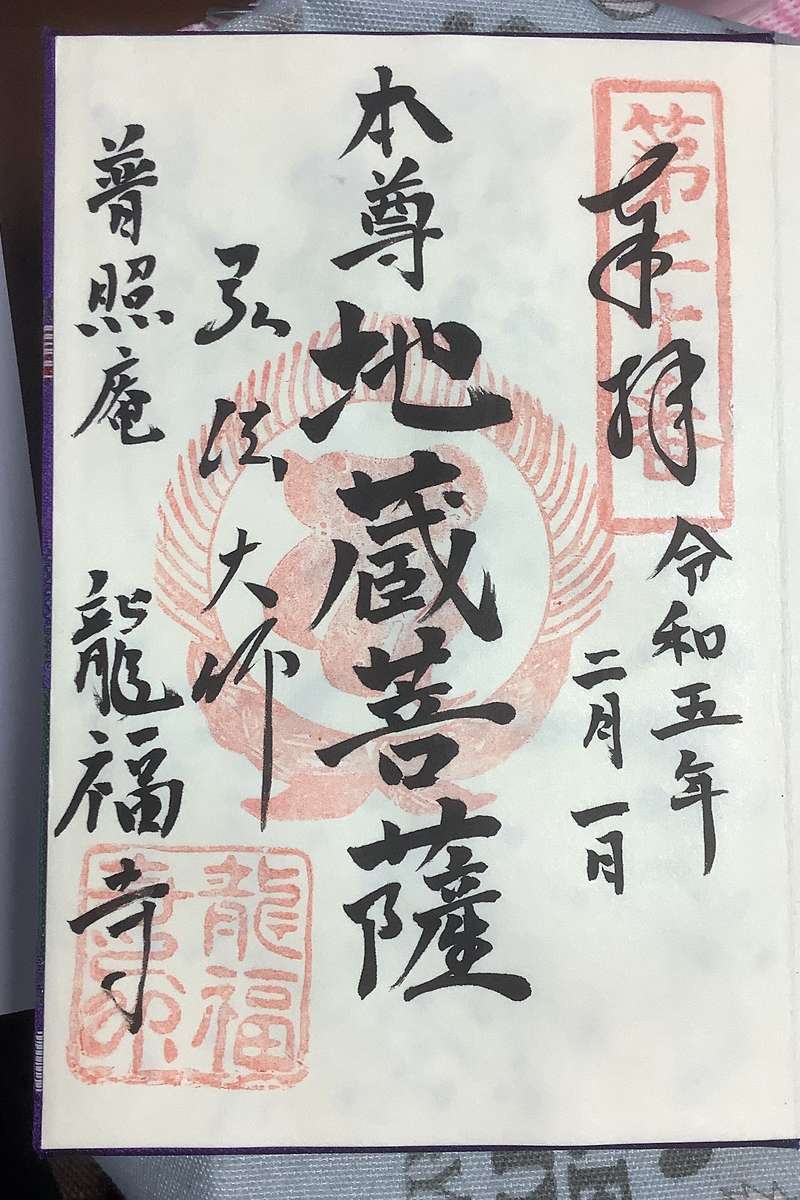 奉拝
令和五年
二月一日
本尊 地蔵菩薩
弘法大師
普照庵 龍福寺
龍福